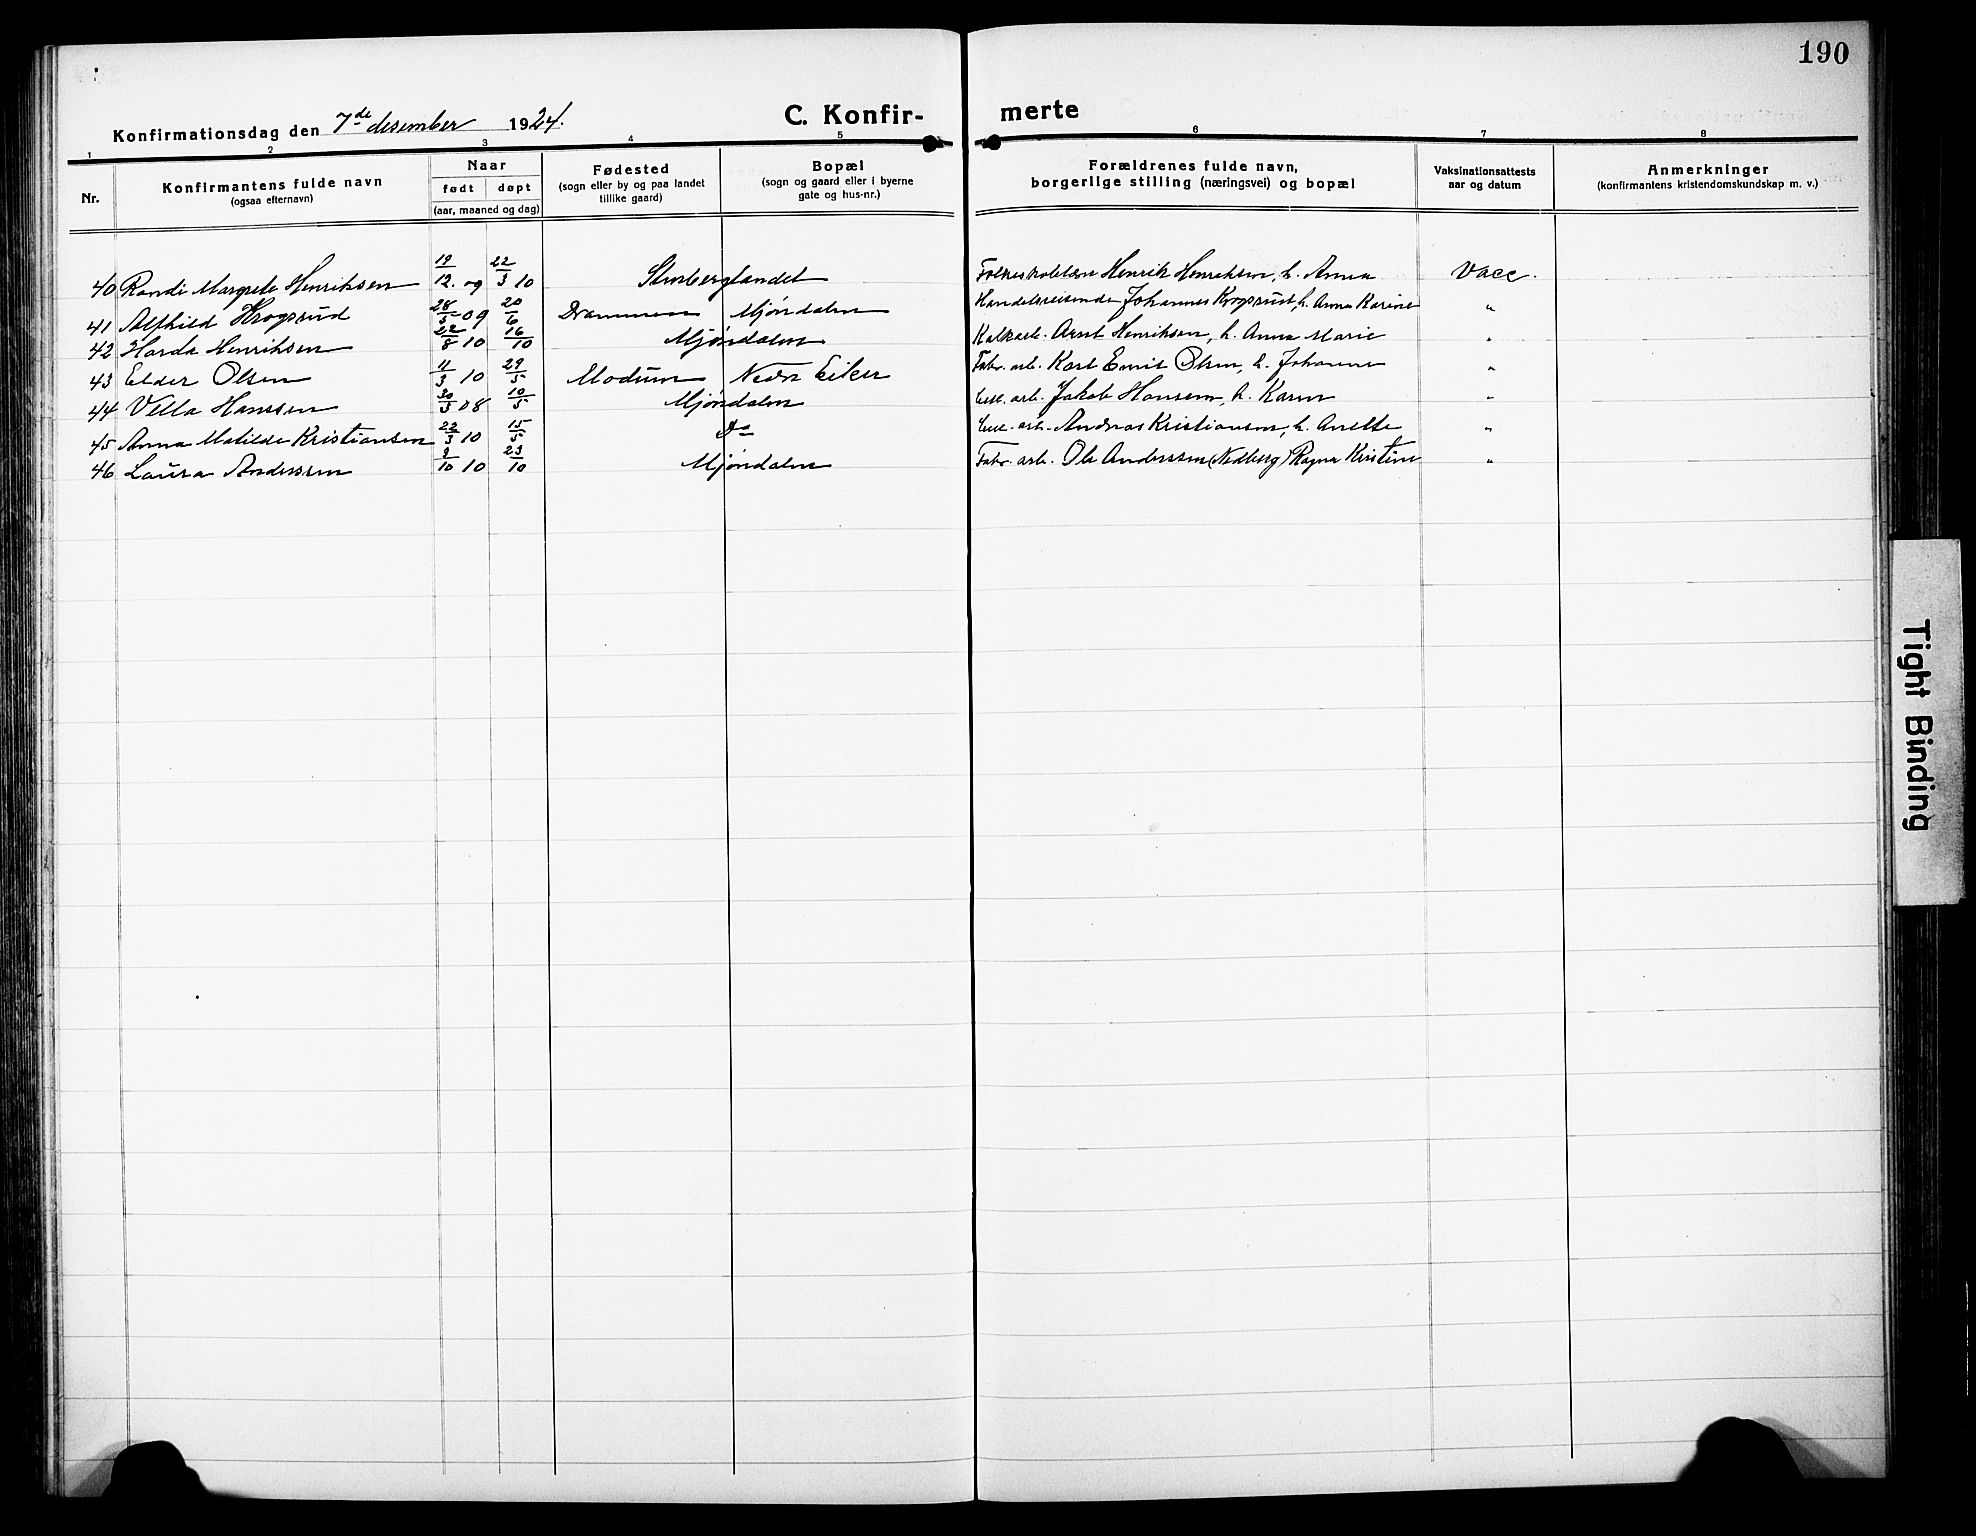 190
Konfirmationsdag den 7de desember 1924. C. Konfir- merte
1 2 3 4 5 6 7 8
Nr. Konfirmantens fulde navn (ogsaa efternavn) Naar født døpt (aar, maaned og dag) Fødested (sogn eller by og paa landet tillike gaard) Bopæl (sogn og gaard eller i byerne gate og hus-nr.) Forældrenes fulde navn, borgerlige stilling (næringsvei) og bopæl Vaksinationsattests aar og datum Anmerkninger (konfirmantens kristendomskundskap m. v.)
40 Randi Margrete Henriksen 19/12. 09 22/3 10 Stenberglandet Henrik Henriksen, h. Anna Vacc.
41 Alfhild Krogsrud 28/5 09 20/6 Drammen Mjøndalen Handelsreisende Johannes Krogsrud, h. Anna Karine "
42 Harda Henriksen 22/8 10 16/10 Mjøndalen Kalkarb. Arnt Henriksen, h. Anna Marie "
43 Elder Olsen 11/3 10 29/5 Modum Nedre Eiker Fabr. arb. Karl Emil Olsen, h. Johanne "
44 Vella Hanssen 30/3 08 10/5 Mjøndalen Cell. arb. Jakob Hansen, h. Karen "
45 Anna Matilde Kristiansen 22/3 10 15/5 Do Cell. arb. Andreas Kristiansen, h. Anette "
46 Laura Anderssen 9/10 10 23/10 Mjøndalen Fabr. arb. Ole Anderssen (Nedberg) Ragna Kristine "
Tight Binding